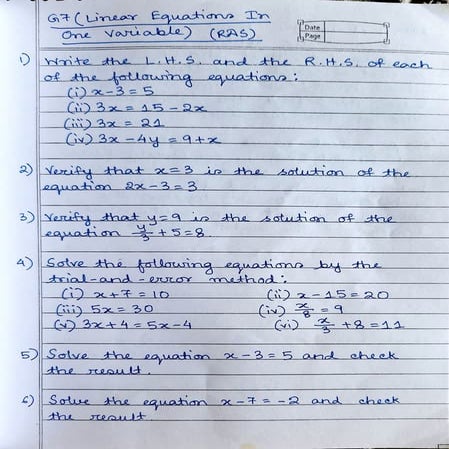 G7 (Linear Equations In
One Variable) (RAS)
Date
Page
1) Write the L.H.S. and the R.H.S. of each
of the following equations:
(i) x-3=5
(ii) 3x = 15-2x
(iii) 3x = 21
(iv) 3x-4y = 9+x
2) Verify that x=3 is the solution of the
equation 2x-3=3
3) Verify that y=9 is the solution of the
equation y/3 +5=8.
4) Solve the following equations by the
trial-and-error method:
(i) x+7=10 (ii) x-15=20
(iii) 5x=30 (iv) x/8 = 9
(v) 3x+4=5x-4 (vi) x/3 +8=11
5) Solve the equation x-3=5 and check
the result.
6) Solve the equation x-7=-2 and check
the result.